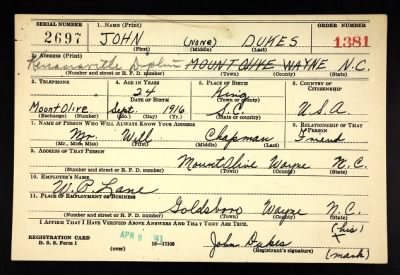 SERIAL NUMBER 1. NAME (Print) ORDER NUMBER
2697 JOHN (NONE) DUKES 1381
(First) (Middle) (Last)
2. ADDRESS (Print)
Kenansville Duplin MOUNT OLIVE WAYNE N.C.
(Number and street or R. F. D. number) (Town) (County) (State)
3. TELEPHONE 4. AGE IN YEARS 5. PLACE OF BIRTH 6. COUNTRY OF CITIZENSHIP
24 King
Mount Olive DATE OF BIRTH (Town or county)
Sept. 1916 S.C. U.S.A
7. NAME OF PERSON WHO WILL ALWAYS KNOW YOUR ADDRESS 8. RELATIONSHIP OF THAT PERSON
Mr. Will Chapman Friend
(Mr., Mrs., Miss) (First) (Middle) (Last)
9. ADDRESS OF THAT PERSON
Mount Olive Wayne N.C.
(Number and street or R. F. D. number) (Town) (County) (State)
10. EMPLOYER'S NAME
W. P. Lane
11. PLACE OF EMPLOYMENT OR BUSINESS
Goldsboro Wayne N.C.
(Number and street or R. F. D. number) (Town) (County) (State)
I AFFIRM THAT I HAVE VERIFIED ABOVE ANSWERS AND THAT THEY ARE TRUE. (his)
REGISTRATION CARD APR 41 John X Dukes
D. S. S. Form 1 (over) 16—17105 (Registrant's signature) (mark)